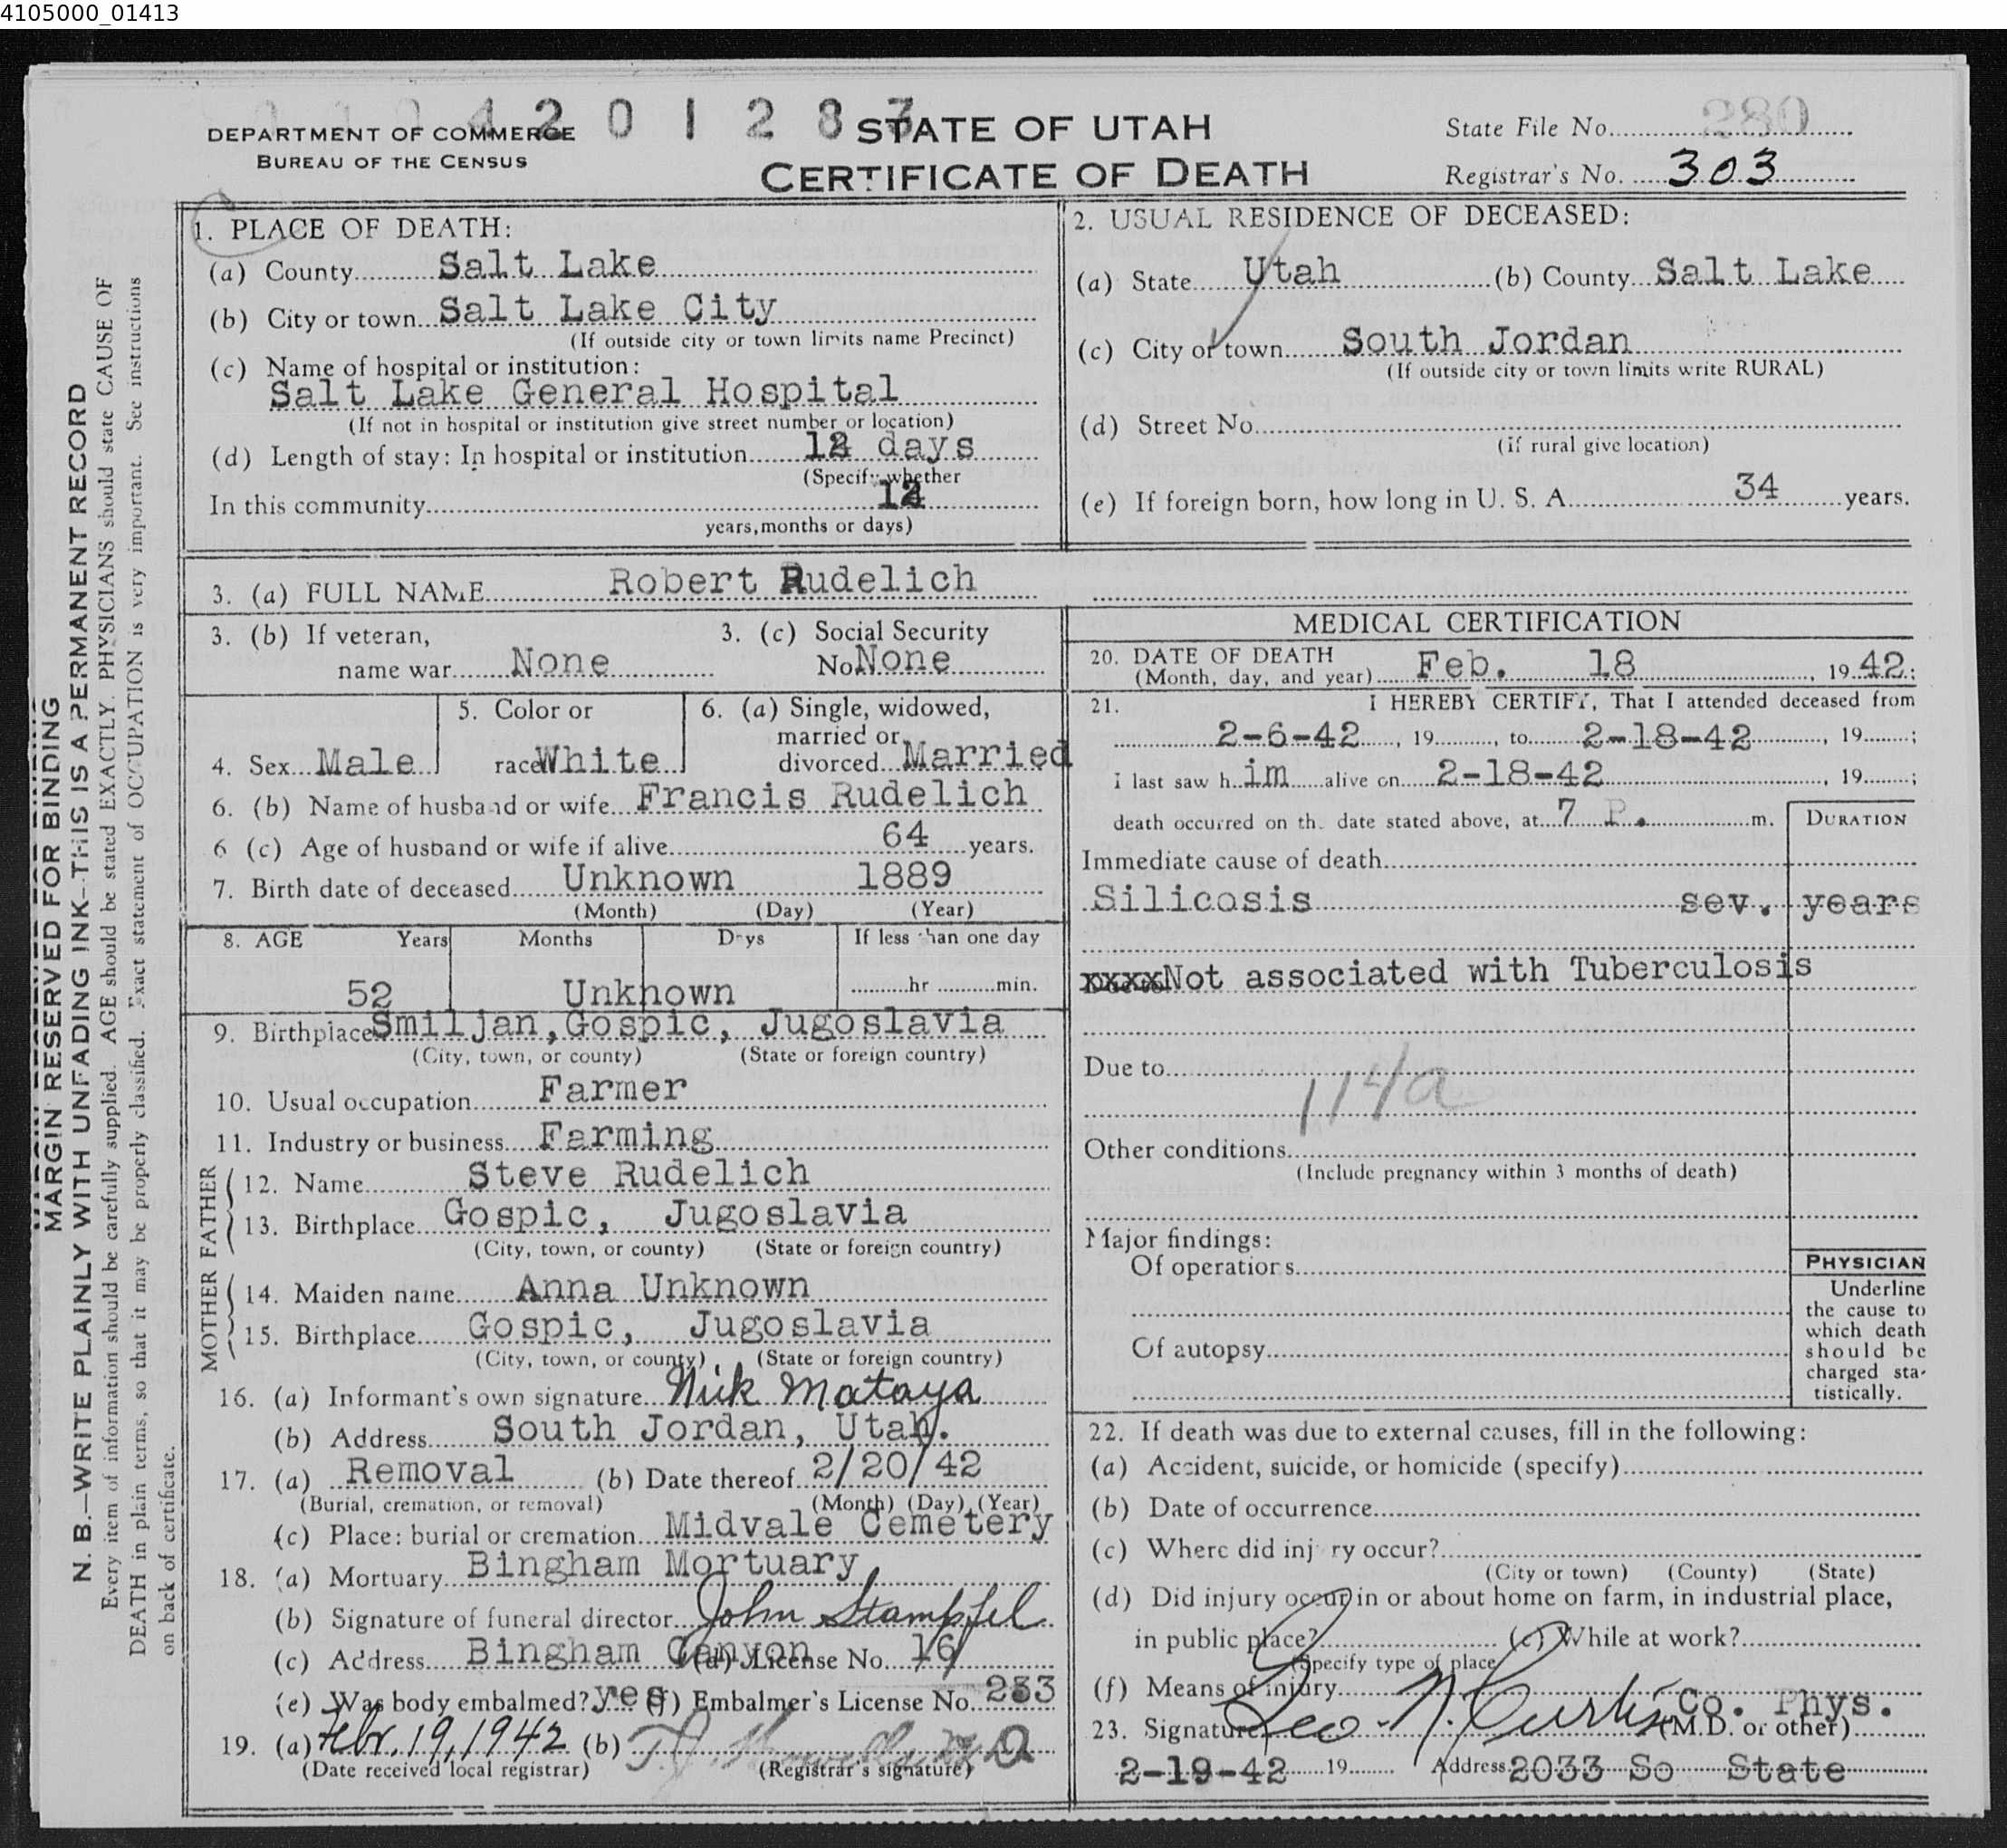 4105000_01413
4 2 0 1 2 8 3
DEPARTMENT OF COMMERCE
BUREAU OF THE CENSUS
STATE OF UTAH
CERTIFICATE OF DEATH
State File No. 280
Registrar's No. 303
MARGIN RESERVED FOR BINDING
N. B.—WRITE PLAINLY WITH UNFADING INK—THIS IS A PERMANENT RECORD
Every item of information should be carefully supplied. AGE should be stated EXACTLY. PHYSICIANS should state CAUSE OF
DEATH in plain terms, so that it may be properly classified. Exact statement of OCCUPATION is very important. See instructions
on back of certificate.
1. PLACE OF DEATH:
(a) County Salt Lake
(b) City or town Salt Lake City
(If outside city or town limits name Precinct)
(c) Name of hospital or institution:
Salt Lake General Hospital
(If not in hospital or institution give street number or location)
(d) Length of stay: In hospital or institution 12 days
(Specify whether
In this community 12
years, months or days)
2. USUAL RESIDENCE OF DECEASED:
(a) State Utah (b) County Salt Lake
(c) City or town South Jordan
(If outside city or town limits write RURAL)
(d) Street No.
(if rural give location)
(e) If foreign born, how long in U. S. A. 34 years.
3. (a) FULL NAME Robert Rudelich
3. (b) If veteran,
name war None
3. (c) Social Security
No None
4. Sex Male
5. Color or
race White
6. (a) Single, widowed,
married or
divorced Married
6. (b) Name of husband or wife Francis Rudelich
6 (c) Age of husband or wife if alive 64 years.
7. Birth date of deceased Unknown 1889
(Month) (Day) (Year)
8. AGE Years Months Days If less than one day
52 Unknown hr min.
9. Birthplace Smiljan, Gospic, Jugoslavia
(City, town, or county) (State or foreign country)
10. Usual occupation Farmer
11. Industry or business Farming
FATHER
12. Name Steve Rudelich
13. Birthplace Gospic, Jugoslavia
(City, town, or county) (State or foreign country)
MOTHER
14. Maiden name Anna Unknown
15. Birthplace Gospic, Jugoslavia
(City, town, or county) (State or foreign country)
16. (a) Informant's own signature Nick Mataya
(b) Address South Jordan, Utah.
17. (a) Removal (b) Date thereof 2/20/42
(Burial, cremation, or removal) (Month) (Day) (Year)
(c) Place: burial or cremation Midvale Cemetery
18. (a) Mortuary Bingham Mortuary
(b) Signature of funeral director John Stampfel
(c) Address Bingham Canyon (d) License No. 16
(e) Was body embalmed? yes (f) Embalmer's License No. 233
19. (a) Febr. 19, 1942 (b)
(Date received local registrar) (Registrar's signature)
MEDICAL CERTIFICATION
20. DATE OF DEATH
(Month, day, and year) Feb. 18, 19 42;
21. I HEREBY CERTIFY, That I attended deceased from
2-6-42, 19, to 2-18-42, 19;
I last saw h im alive on 2-18-42, 19;
death occurred on the date stated above, at 7 P. m.
DURATION
Immediate cause of death
Silicosis sev. years
xxxxNot associated with Tuberculosis
Due to
114a
Other conditions
(Include pregnancy within 3 months of death)
Major findings:
Of operations
Of autopsy
PHYSICIAN
Underline
the cause to
which death
should be
charged sta-
tistically.
22. If death was due to external causes, fill in the following:
(a) Accident, suicide, or homicide (specify)
(b) Date of occurrence
(c) Where did injury occur?
(City or town) (County) (State)
(d) Did injury occur in or about home on farm, in industrial place,
in public place? (e) While at work?
(Specify type of place
(f) Means of injury
23. Signature Leo N. Curtis Co. Phys.
(M.D. or other)
2-19-42 19 Address 2033 So State